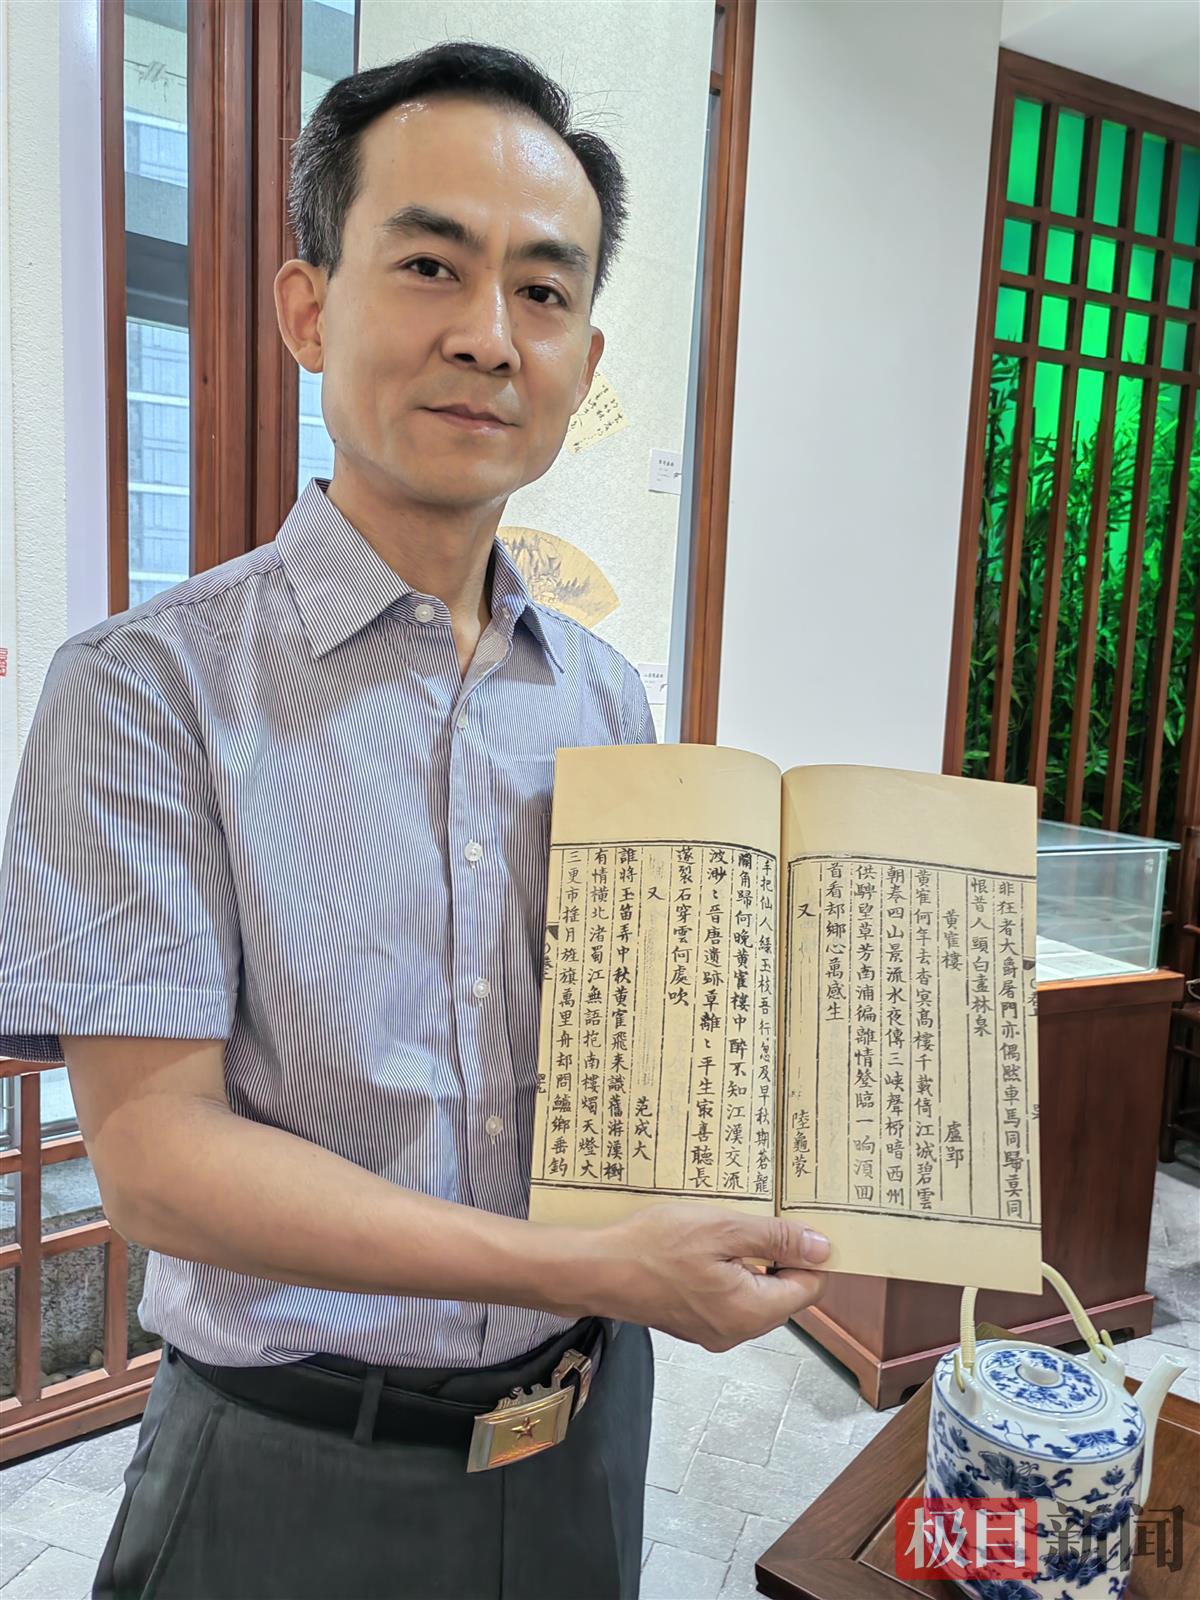 非狂者大爵屠門亦偶然車馬同歸莫同
恨昔人頭白盡林泉
黃寉樓 盧郢
黃寉何年去杳冥高樓千載倚江城碧雲
朝奉四山景流水夜傳三峽聲栁暗西州
供騁望草芳南浦徧離情登臨一晌湏囬
首看却鄉心萬感生
又 陸龜蒙
手把仙人綠玉枝吾行忽及早秋期蒼龍
闕角歸何晚黃寉樓中醉不知江漢交流
波渺〻晉唐遺跡草離〻平生㝡喜聽長
篴裂石穿雲何處吹
又 范成大
誰將玉笛弄中秋黃寉飛来識舊游漢樹
有情橫北渚蜀江無語抱南樓燭天燈火
三更市搖月旌旗萬里舟却問鱸鄉垂釣
极目新闻